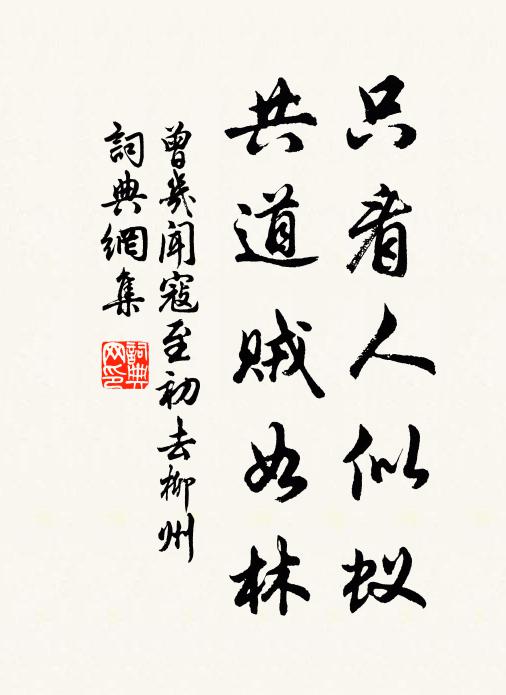 只看人似蚁
共道贼如林
曾幾聞寇至初去柳州
詞典網集
詞典网印